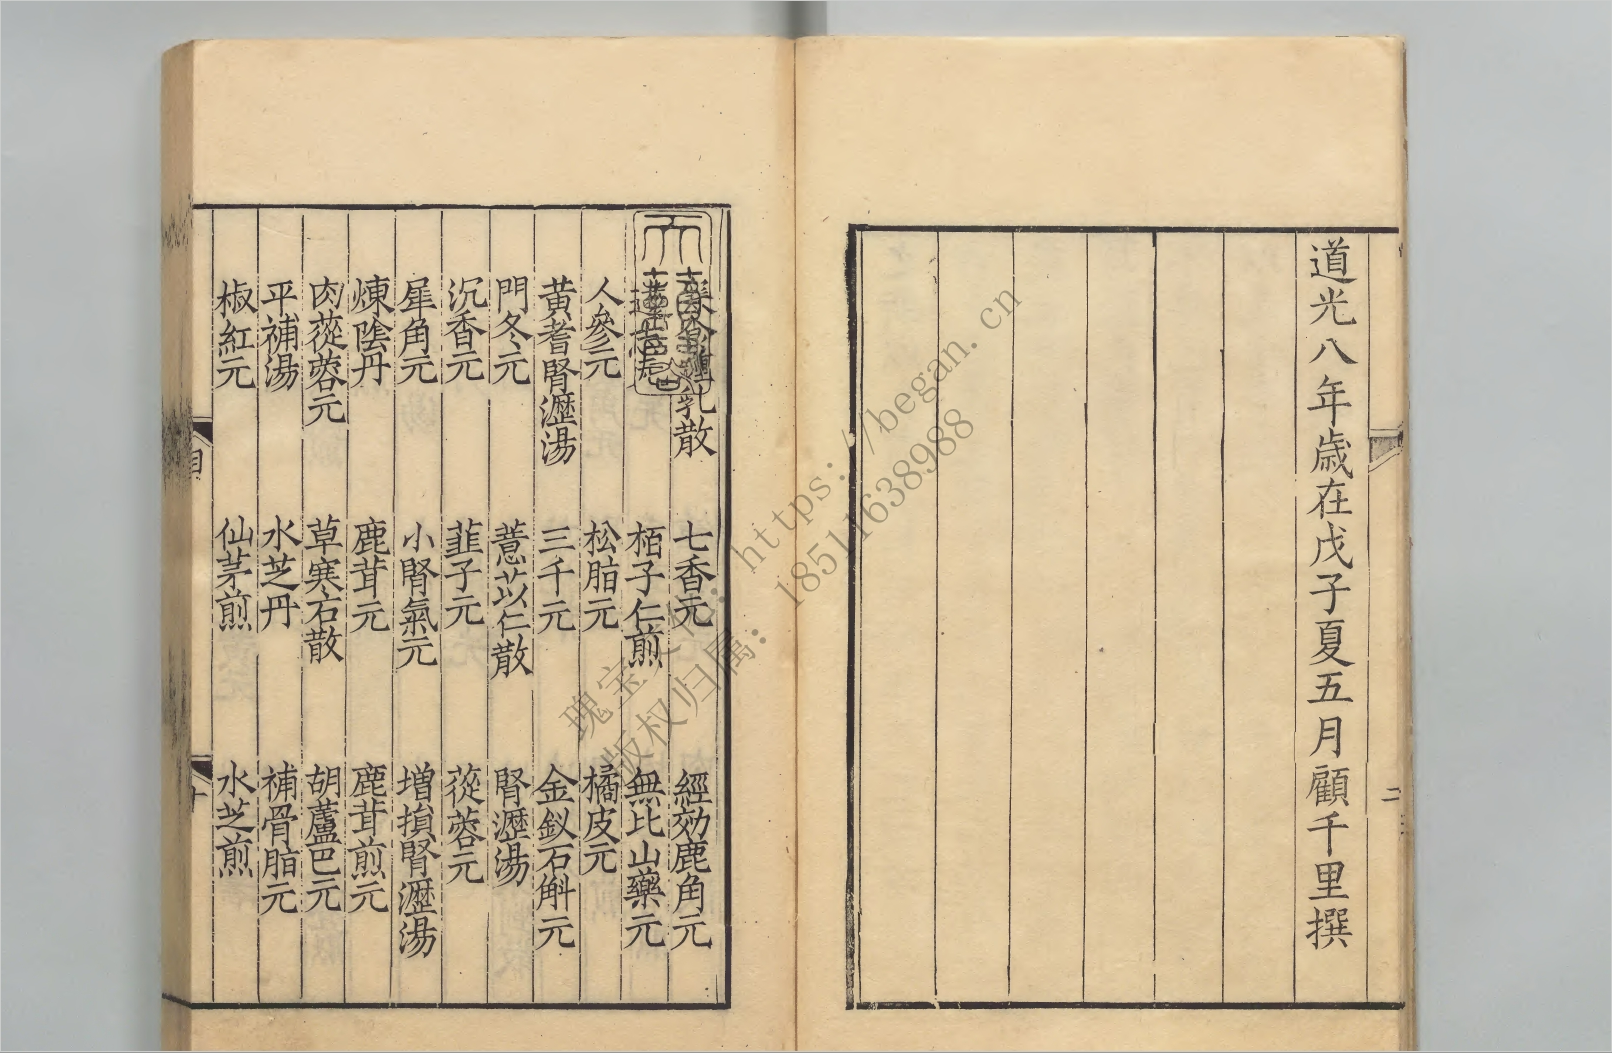 道光八年歲在戊子夏五月顧千里撰
二
乳散　七香元　經効鹿角元
栢子仁煎　無比山藥元
人參元　松脂元　橘皮元
黃耆腎瀝湯　三千元　金釵石斛元
門冬元　薏苡仁散　腎瀝湯
沉香元　韭子元　蓯蓉元
犀角元　小腎氣元　增損腎瀝湯
煉陰丹　鹿茸元　鹿茸煎元
肉蓯蓉元　草寒石散　胡蘆巴元
平補湯　水芝丹　補骨脂元
椒紅元　仙茅煎　水芝煎
目
https://began.cn
版权归属: 18511638988